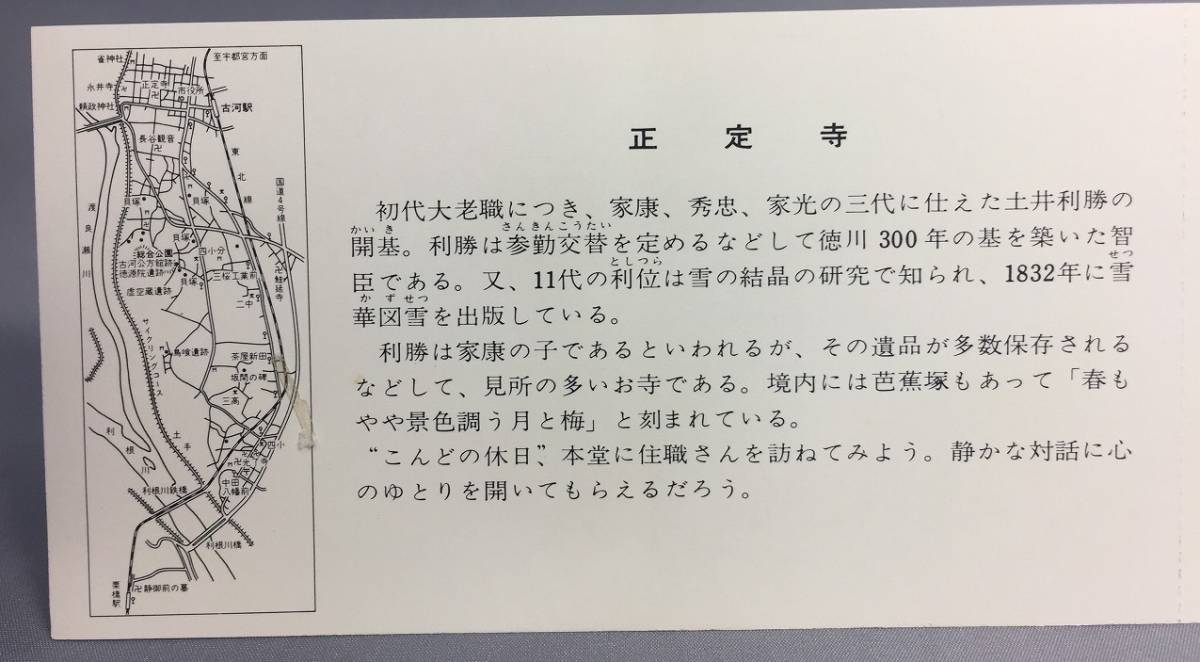 正定寺
初代大老職につき、家康、秀忠、家光の三代に仕えた土井利勝の
かいき さんきんこうたい
開基。利勝は参勤交替を定めるなどして徳川300年の基を築いた智
としつら せつ
臣である。又、11代の利位は雪の結晶の研究で知られ、1832年に雪
かずせつ
華図雪を出版している。
利勝は家康の子であるといわれるが、その遺品が多数保存される
などして、見所の多いお寺である。境内には芭蕉塚もあって「春も
やや景色調う月と梅」と刻まれている。
“こんどの休日”、本堂に住職さんを訪ねてみよう。静かな対話に心
のゆとりを開いてもらえるだろう。
雀神社
至宇都宮方面
永井寺
正定寺
市役所
頼政神社
古河駅
長谷観音
東北線
国道4号線
渡良瀬川
貝塚
貝塚
貝塚
四小分
総合公園
古河公方館跡
徳源院遺跡
三桜工業前
鮭延寺
虚空蔵遺跡
貝塚
二中
サイクリングコース
鳥喰遺跡
茶屋新田
坂間の碑
三高
利根川
土手
四小
光了寺
中田
八幡前
利根川鉄橋
利根川橋
静御前の墓
栗橋駅